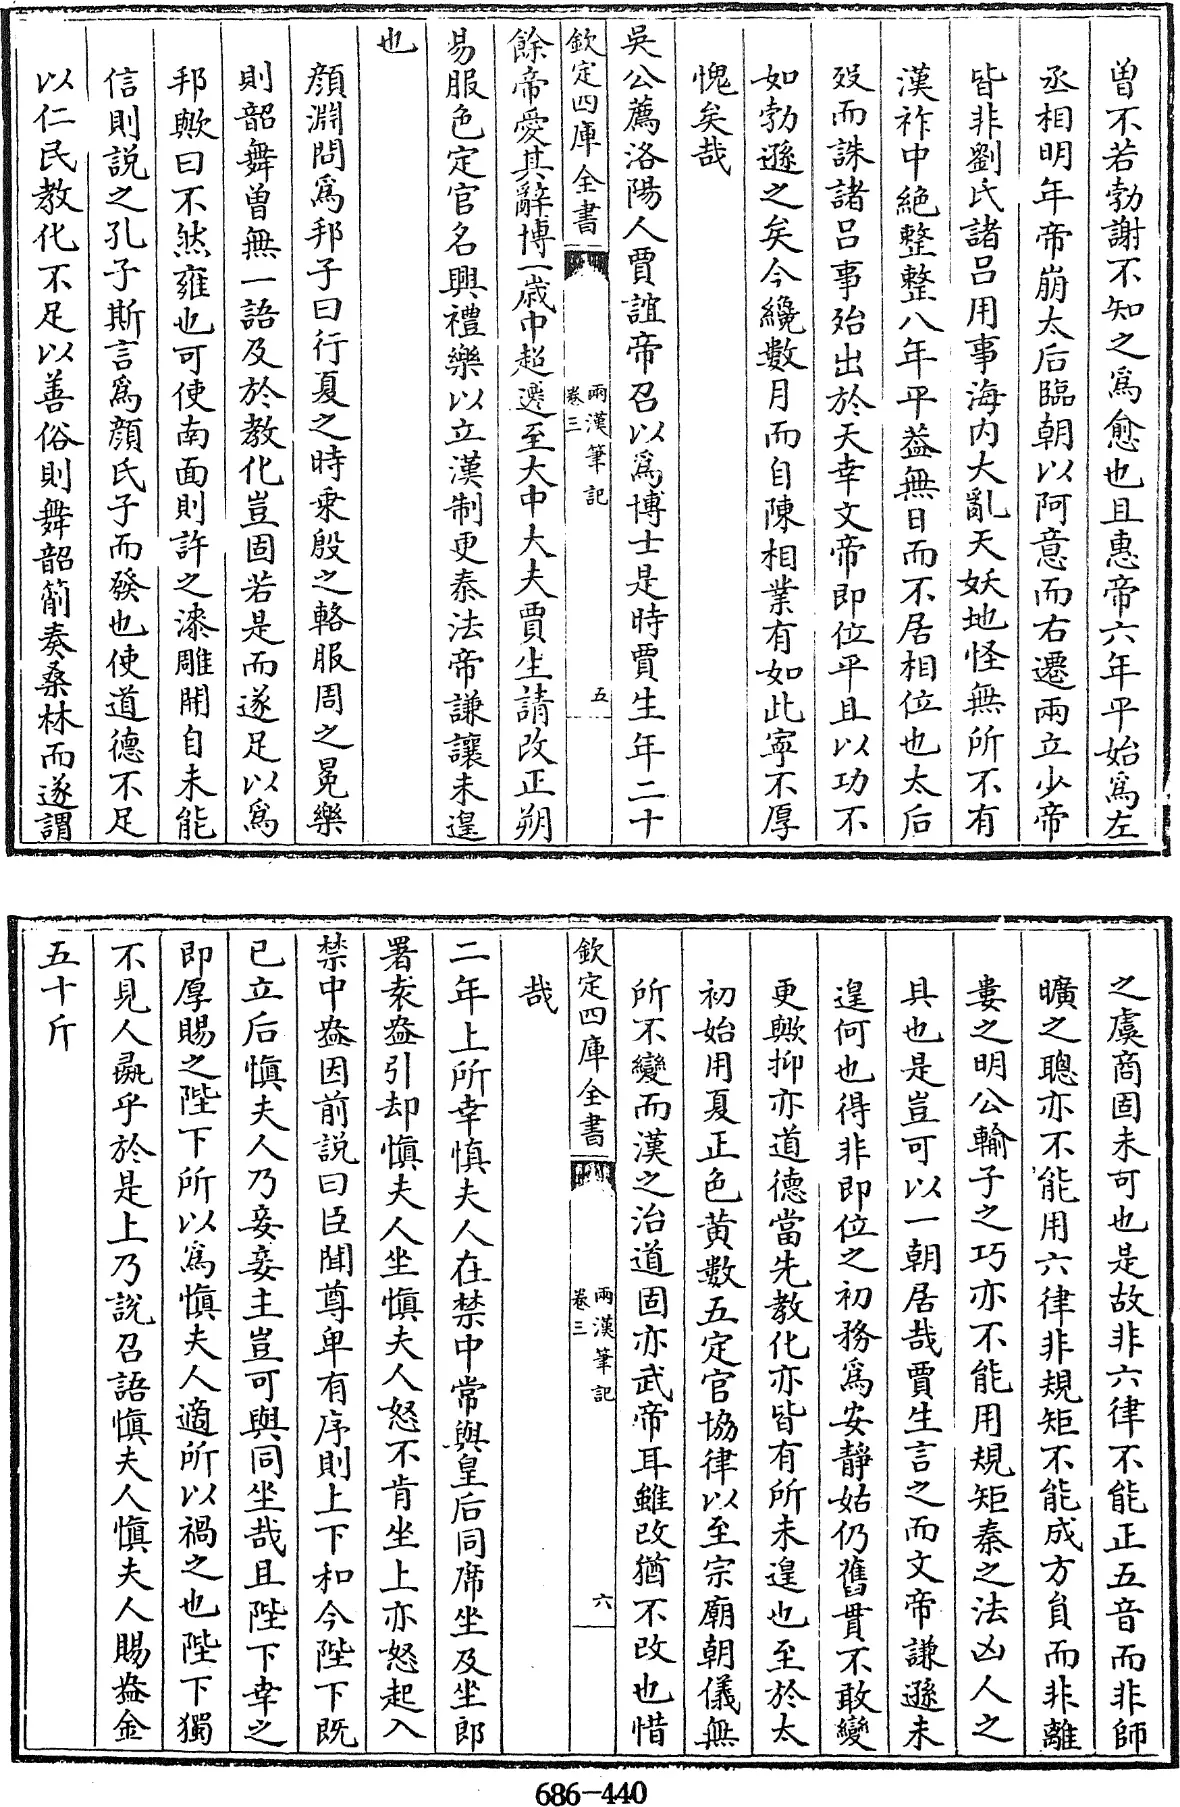 曽不若勃謝不知之爲愈也且惠帝六年平始爲左
丞相明年帝崩太后臨朝以阿意而右遷兩立少帝
皆非劉氏諸吕用事海内大亂天妖地怪無所不有
漢祚中絶整整八年平葢無日而不居相位也太后
殁而誅諸吕事殆出於天幸文帝即位平且以功不
如勃遜之矣今纔數月而自陳相業有如此寧不厚
愧矣哉
吳公薦洛陽人賈誼帝召以爲博士是時賈生年二十
欽定四庫全書
兩漢筆記
卷三
五
餘帝愛其辭博一歳中超遷至大中大夫賈生請改正朔
易服色定官名興禮樂以立漢制更秦法帝謙讓未遑
也
顔淵問爲邦子曰行夏之時乘殷之輅服周之冕樂
則韶舞曽無一語及於教化豈固若是而遂足以爲
邦歟曰不然雍也可使南面則許之漆雕開自未能
信則説之孔子斯言爲顔氏子而發也使道德不足
以仁民教化不足以善俗則舞韶箾奏桑林而遂謂
之虞商固未可也是故非六律不能正五音而非師
曠之聰亦不能用六律非規矩不能成方員而非離
婁之明公輸子之巧亦不能用規矩秦之法凶人之
具也是豈可以一朝居哉賈生言之而文帝謙遜未
遑何也得非即位之初務爲安靜姑仍舊貫不敢變
更歟抑亦道德當先教化亦皆有所未遑也至於太
初始用夏正色黄數五定官協律以至宗廟朝儀無
所不變而漢之治道固亦武帝耳雖改猶不改也惜
欽定四庫全書
兩漢筆記
卷三
六
哉
二年上所幸慎夫人在禁中常與皇后同席坐及坐郎
署袁盎引却慎夫人坐慎夫人怒不肯坐上亦怒起入
禁中盎因前説曰臣聞尊卑有序則上下和今陛下既
已立后慎夫人乃妾妾主豈可與同坐哉且陛下幸之
即厚賜之陛下所以爲慎夫人適所以禍之也陛下獨
不見人彘乎於是上乃説召語慎夫人慎夫人賜盎金
五十斤
686-440